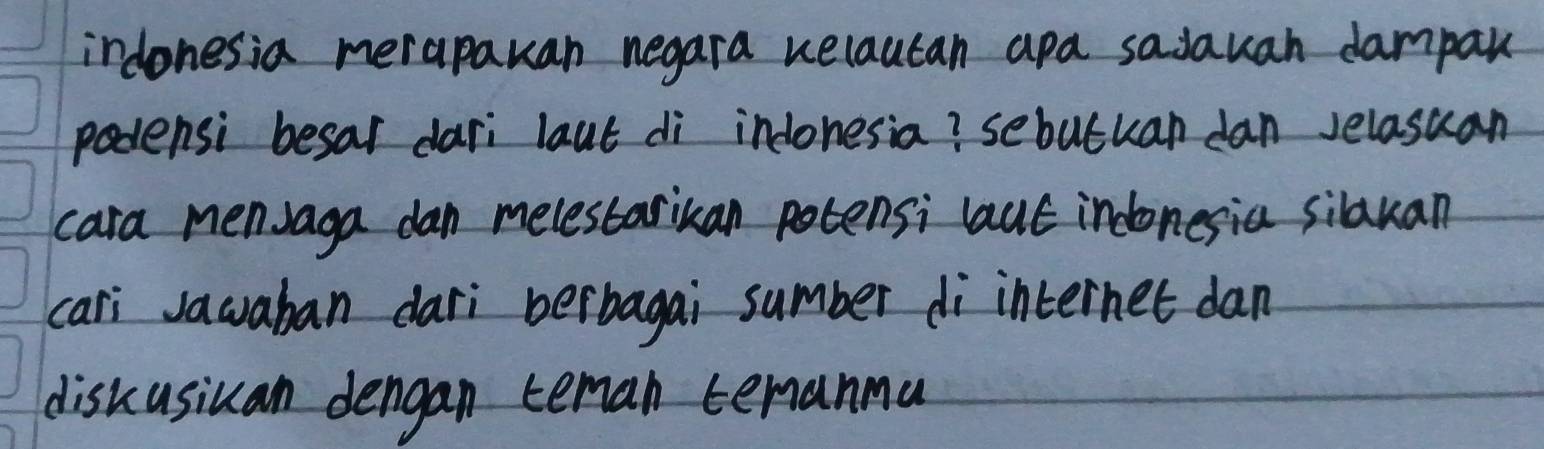 indonesia merupakan negara kelautan apa sajakah dampak
podensi besar dari laut di indonesia? sebutkan dan jelaskan
cara menjaga dan melestarikan potensi laut indonesia silakan
cari jawaban dari berbagai sumber di internet dan
diskusikan dengan teman temanmu